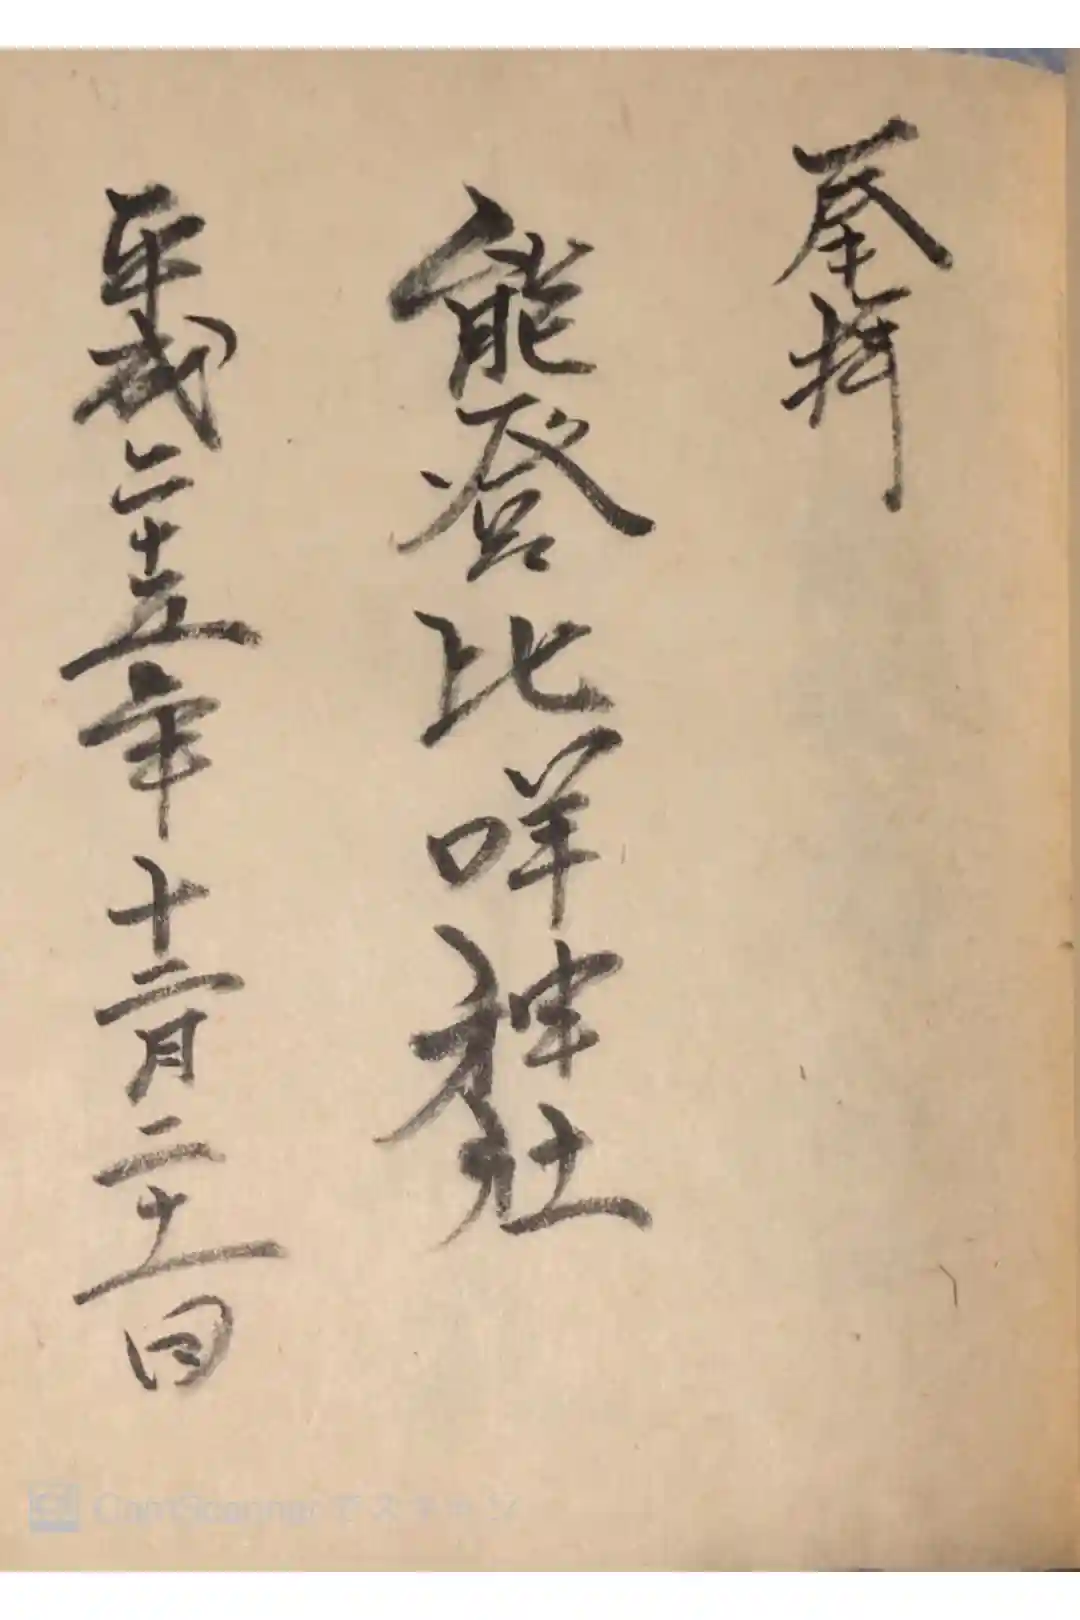 奉拝
能登比咩神社
平成二十五年十二月二十一日
CamScanner でスキャン